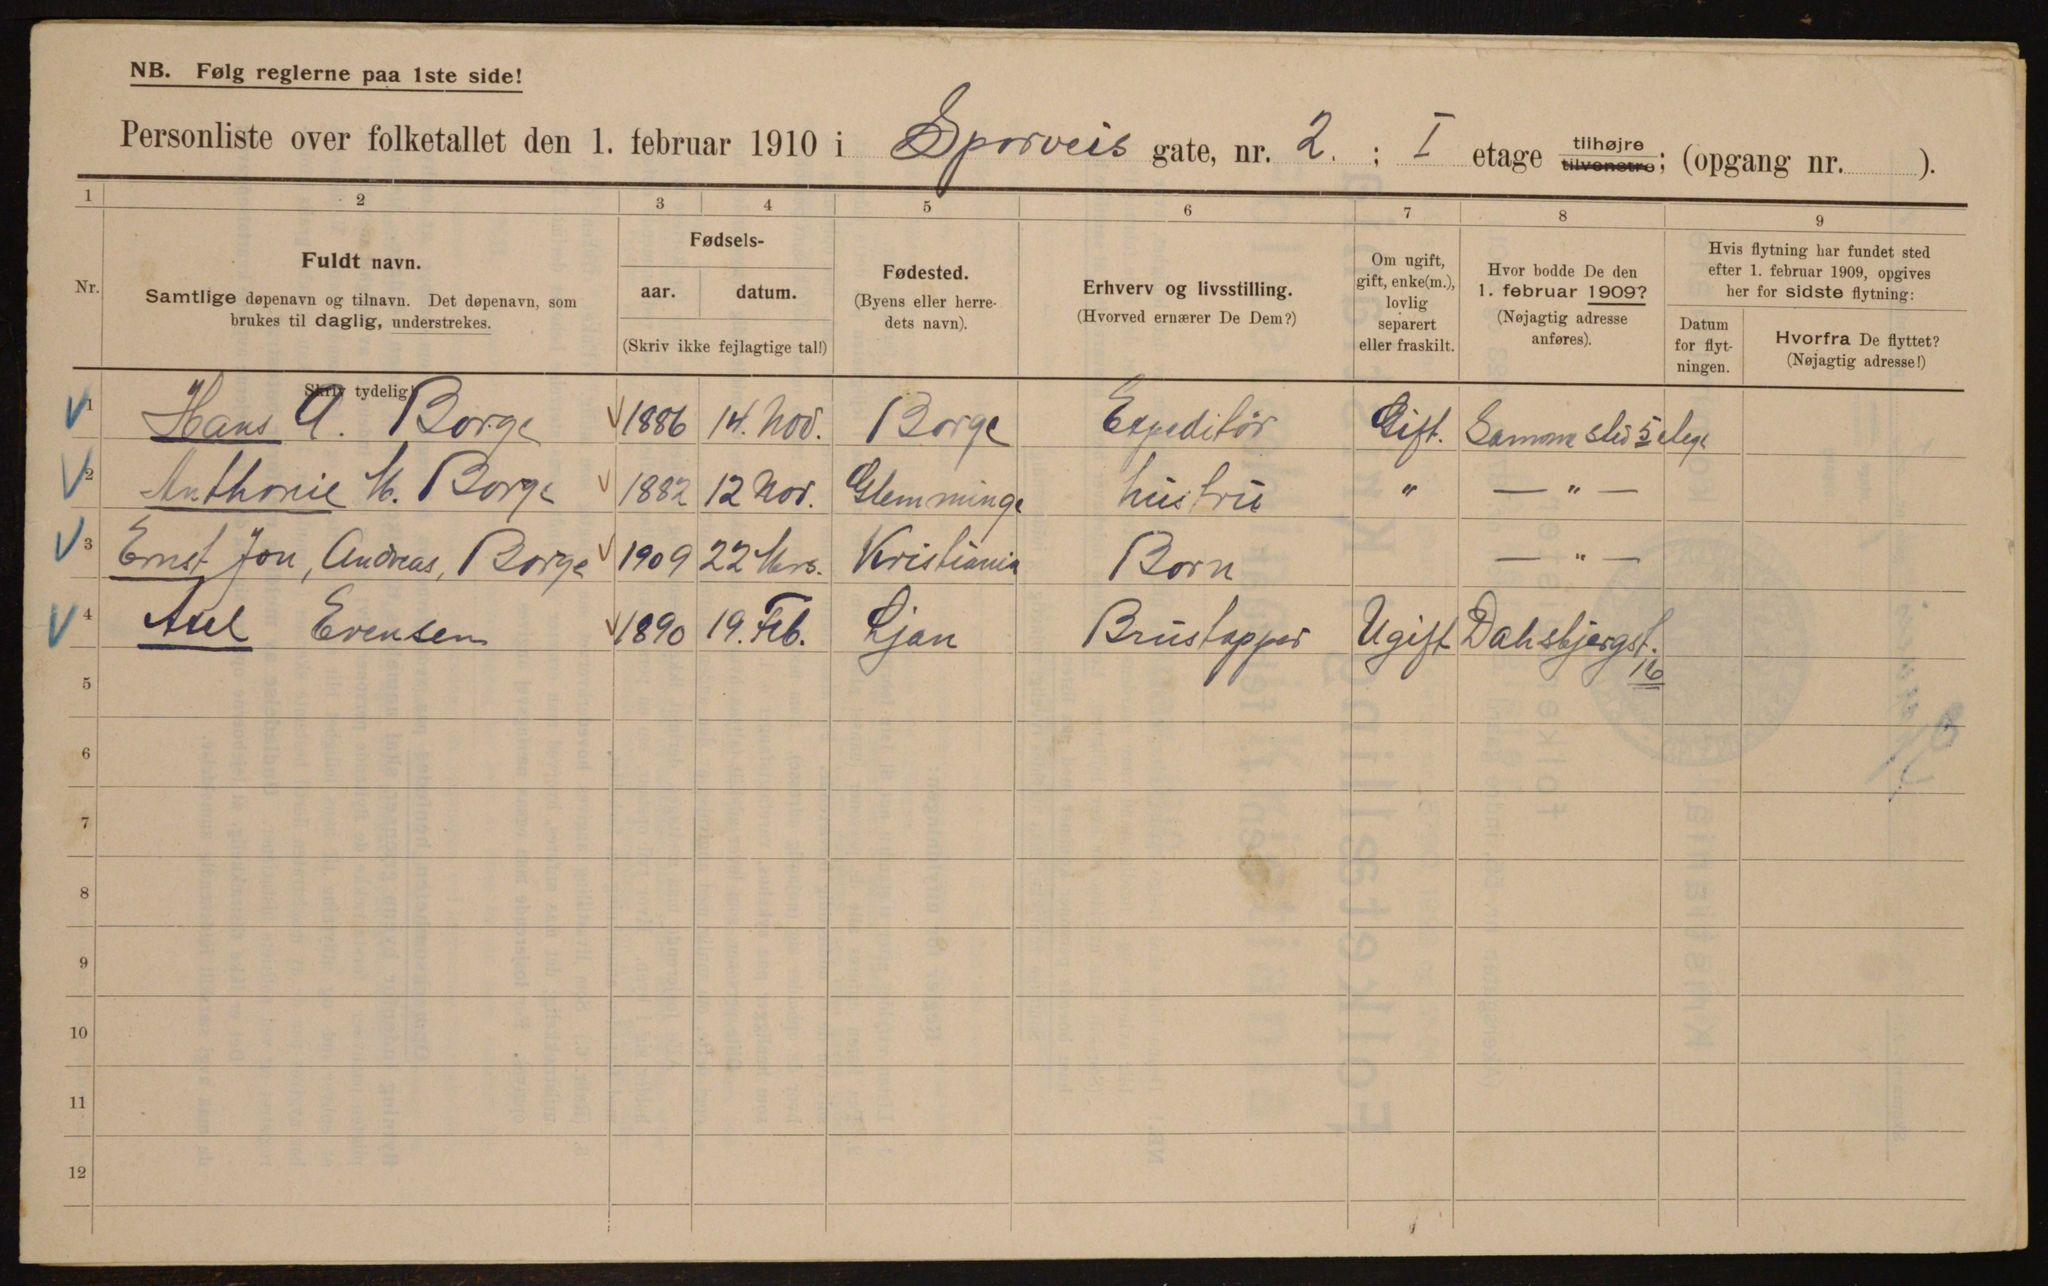 NB. Følg reglerne paa 1ste side!
Personliste over folketallet den 1. februar 1910 i Sporveis gate, nr. 2. ; I etage tilhøjre tilvenstre; (opgang nr. ).
1 2 3 4 5 6 7 8 9
Nr.
Fuldt navn.
Samtlige døpenavn og tilnavn. Det døpenavn, som
brukes til daglig, understrekes.
Skriv tydelig!
Fødsels-
aar. datum.
(Skriv ikke fejlagtige tal!)
Fødested.
(Byens eller herre-
dets navn).
Erhverv og livsstilling.
(Hvorved ernærer De Dem?)
Om ugift,
gift, enke(m.),
lovlig
separert
eller fraskilt.
Hvor bodde De den
1. februar 1909?
(Nøjagtig adresse
anføres).
Hvis flytning har fundet sted
efter 1. februar 1909, opgives
her for sidste flytning:
Datum
for flyt-
ningen.
Hvorfra De flyttet?
(Nøjagtig adresse!)
1 Hans A. Borge 1886 14. Nov. Borge Expeditør Gift. Samme sted 5 etage
2 Anthonie M. Borge 1882 12 Nov. Glemminge hustru " — " —
3 Ernst Jon, Andreas, Borge 1909 22 Mrs. Kristiania Born — " —
4 Axel Evensen 1890 19. Feb. Ljan Brustapper Ugift Dahsbjergst.
16
5
6
7
8
9
10
11
12